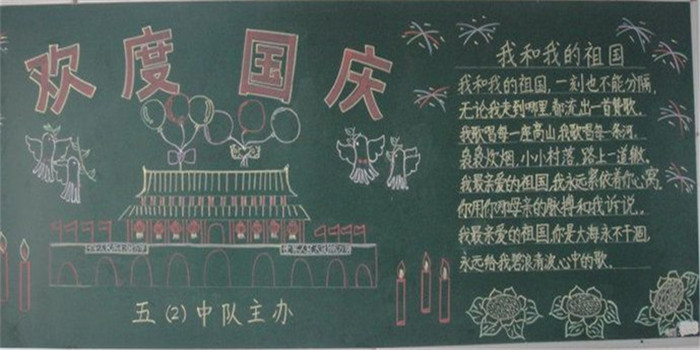 欢度国庆
五(2)中队主办
我和我的祖国
我和我的祖国,一刻也不能分隔,
无论我走到哪里都流出一首赞歌。
我歌唱每一座高山我歌唱每一条河。
袅袅炊烟,小小村落,路上一道辙。
我最亲爱的祖国,我永远紧依着你心窝,
你用你那母亲的脉搏和我诉说。
我最亲爱的祖国你是大海永不干涸,
永远给我碧浪清波心中的歌。